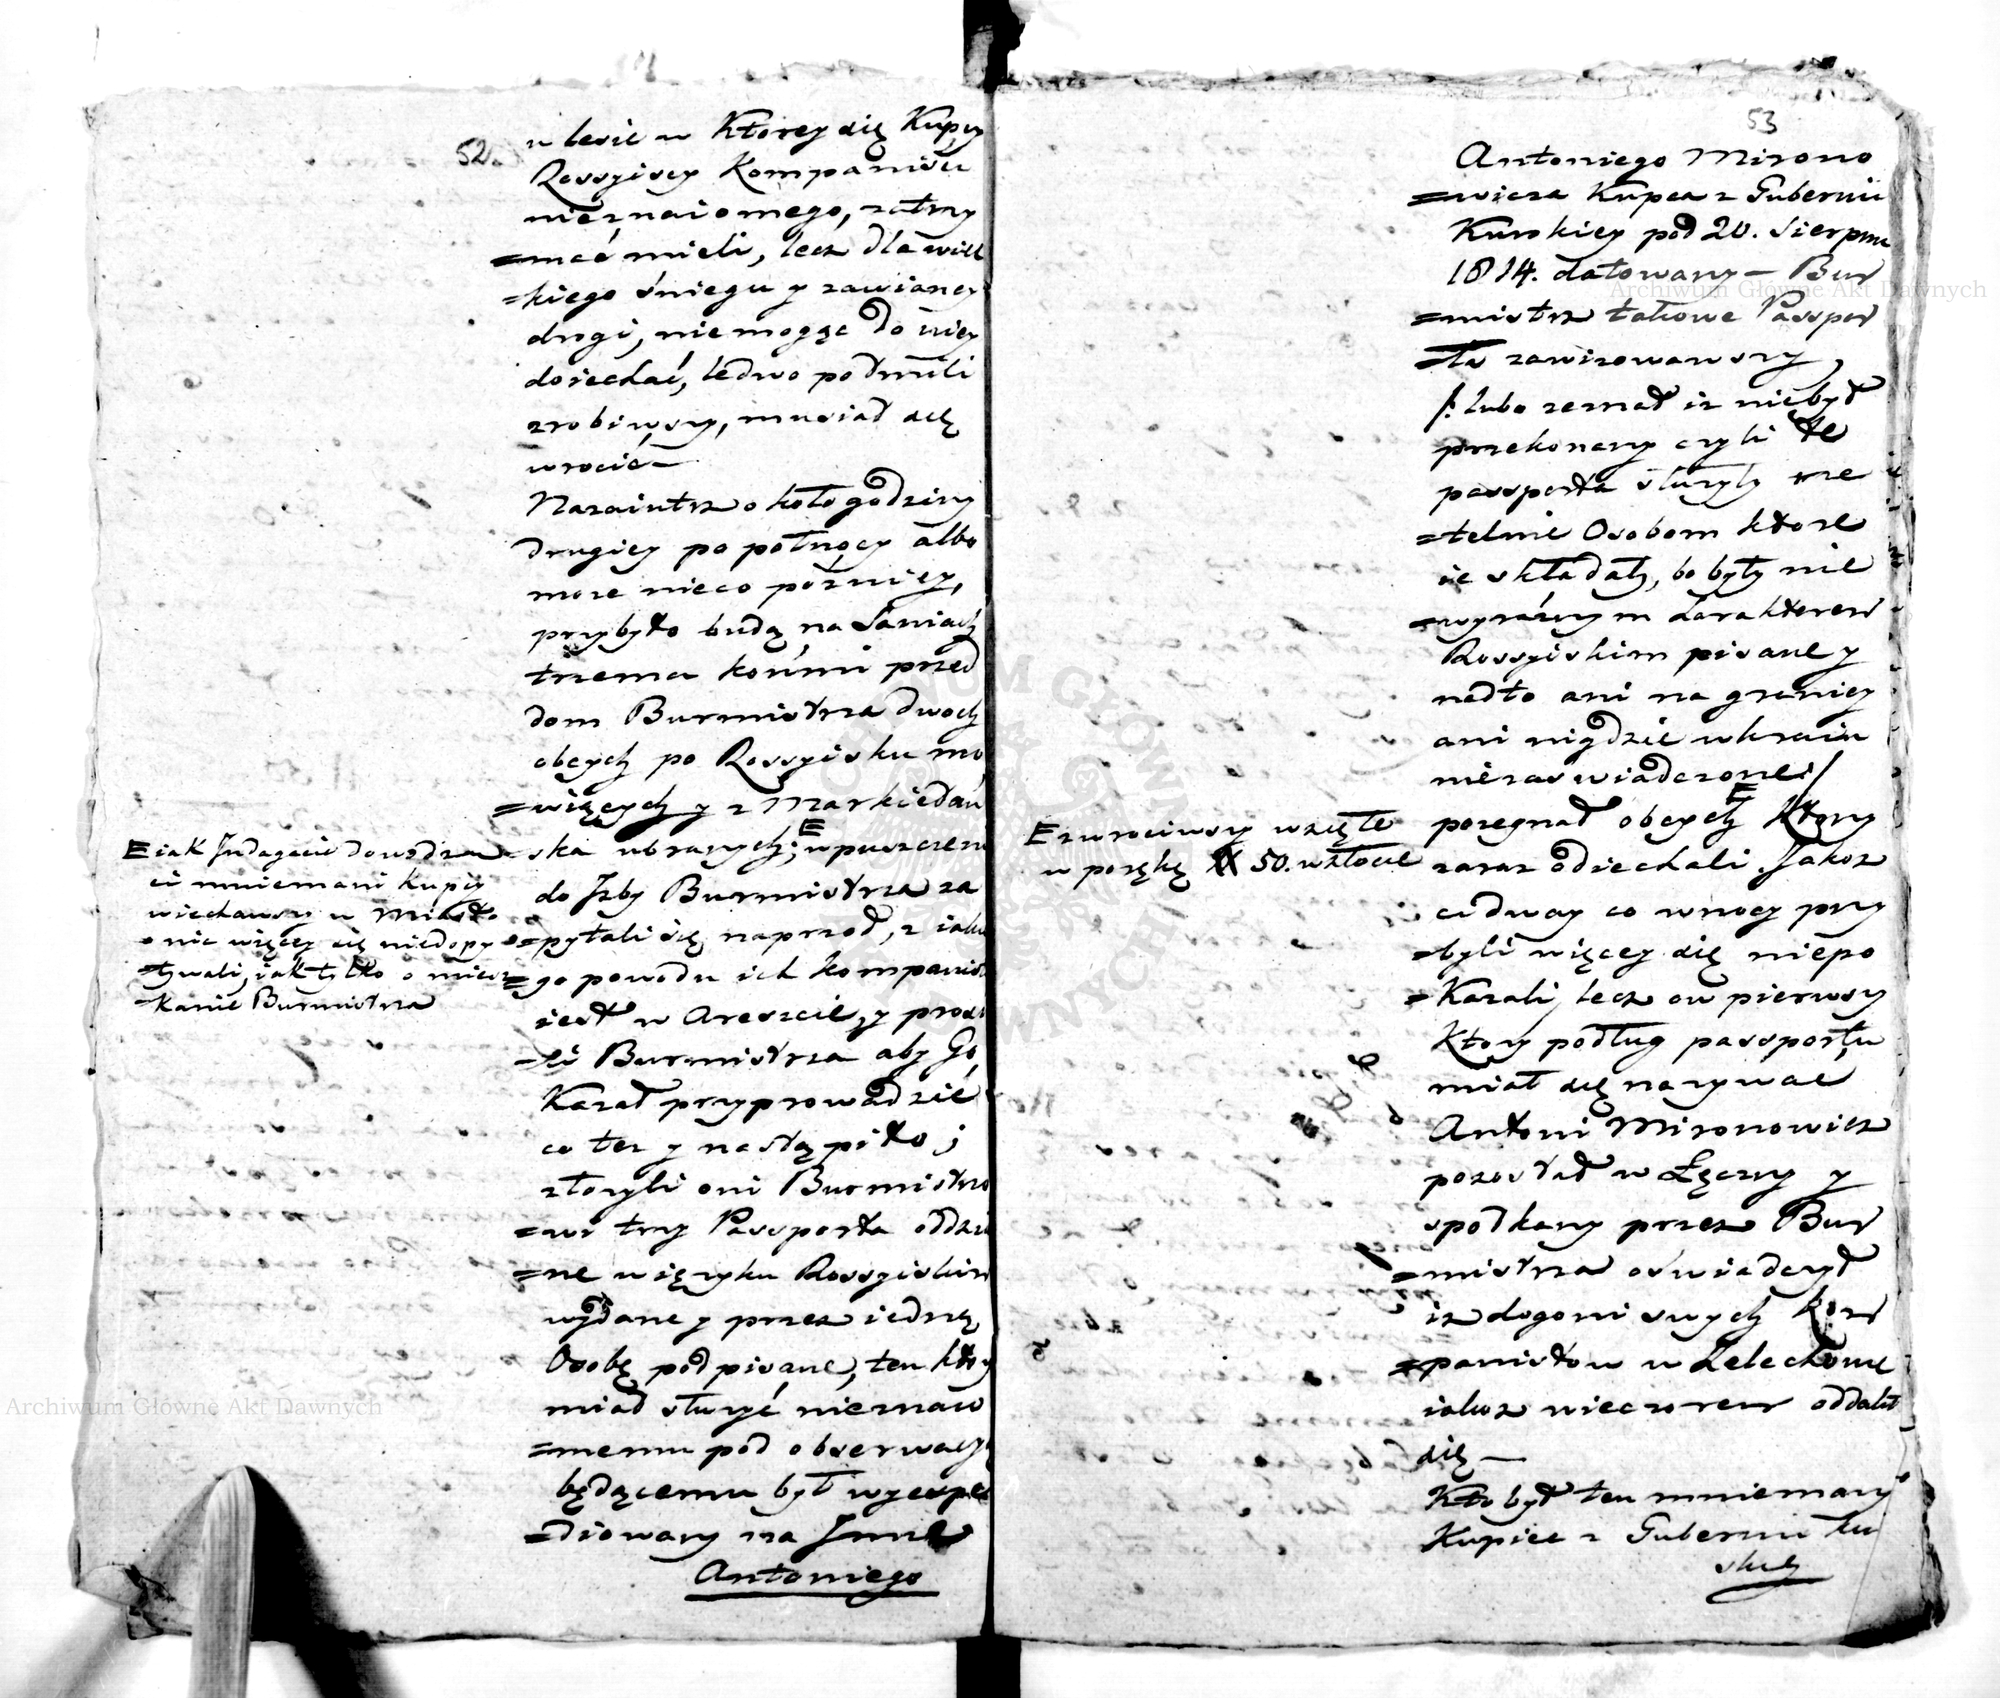 52.
w lesie w Ktorey się Kupcy
Rossyiscy Kompanistu
nieznaiomego, zatrzy
=mać mieli, lecz dla wiel
=kiego śniegu y zawianey
drogi, niemogąc do niey
doiechać, ledwo pod mili
zrobiwszy, musiał się
wrocić —
Nazaiutrz około godziny
drugiey po połnocy albo
moze nieco pozniey,
przybyło budą na Saniach
trzema końmi przed
dom Burmistrza dwoch
obcych po Rossyisku mo
=wiących y z Markiedań
ska ubranych; E wpuszczeni
do Izby Burmistrza za
=pytali się naprzod, z iakie
=go powodu ich kompanist
iest w Areszcie, y prosi
=li Burmistrza aby Go
Kazał przyprowadzić
co tez y nastąpiło;
złozyli oni Burmistrzo
=wi trzy Passporta oddziel
=ne w ięzyku Rossyiskim
wydane y przez iedną
Osobę podpisane, ten ktory
miał słuzyć nieznaio
=memu pod obserwacyą
będącemu był wyexpe
=diowany na Imie
Antoniego
E iak Indagacie dowodzą
ci mniemani kupcy
wiechawszy w Miasto
o nic więcey się niedopy
=tywali, iak tylko o miesz
=kanie Burmistrza
53
Antoniego Mirono
=wicza Kupca z Gubernii
Kurskiey pod 20. Sierpnia
1814. datowany — Bur
=mistrz takowe Passpor
=ta zawizowawszy,
/: lubo zeznał iz niebył
przekonany czyli te
passporta słuzyły rze
=telnie Osobom ktore
ie składały, bo były nie
=wyraźnym karakterem
Rossyiskim pisane y
nadto ani na granicy
ani nigdzie w kraiu
niezaswiadczone :/
pozegnał obcych E ktorzy
zaraz odiechali. Jakoz
ci dway co w nocy przy
=byli więcey się niepo
=kazali, lecz ow pierwszy
Ktory podług passportu
miał się nazywać
Antoni Mironowicz
pozostał w Łęczny y
spotkany przez Bur
=mistrza oświadczył
iz dogoni swych kom
=panistow w Zelechowie
iakoz wieczorem oddalił
się —
Kto był ten mniemany
Kupiec z Gubernii Kur
skiey
E zwrociwszy wzięte
w porękę # 50. w złocie
Archiwum Główne Akt Dawnych
Archiwum Główne Akt Dawnych